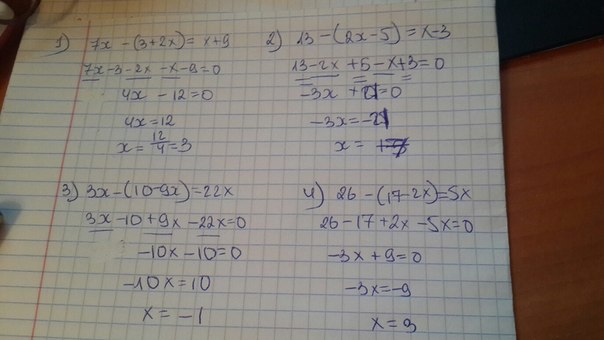 1) 7x - (3+2x) = x+9
7x-3-2x-x-9=0
4x - 12=0
4x=12
x = 12/4 = 3
2) 13 - (2x-5) = x-3
13-2x+5-x+3=0
-3x + 21=0
-3x=-21
x =
3) 3x-(10-9x)=22x
3x-10+9x-22x=0
-10x-10=0
-10x=10
x = -1
4) 26 - (17-2x)=5x
26-17+2x-5x=0
-3x+9=0
-3x=-9
x = 3